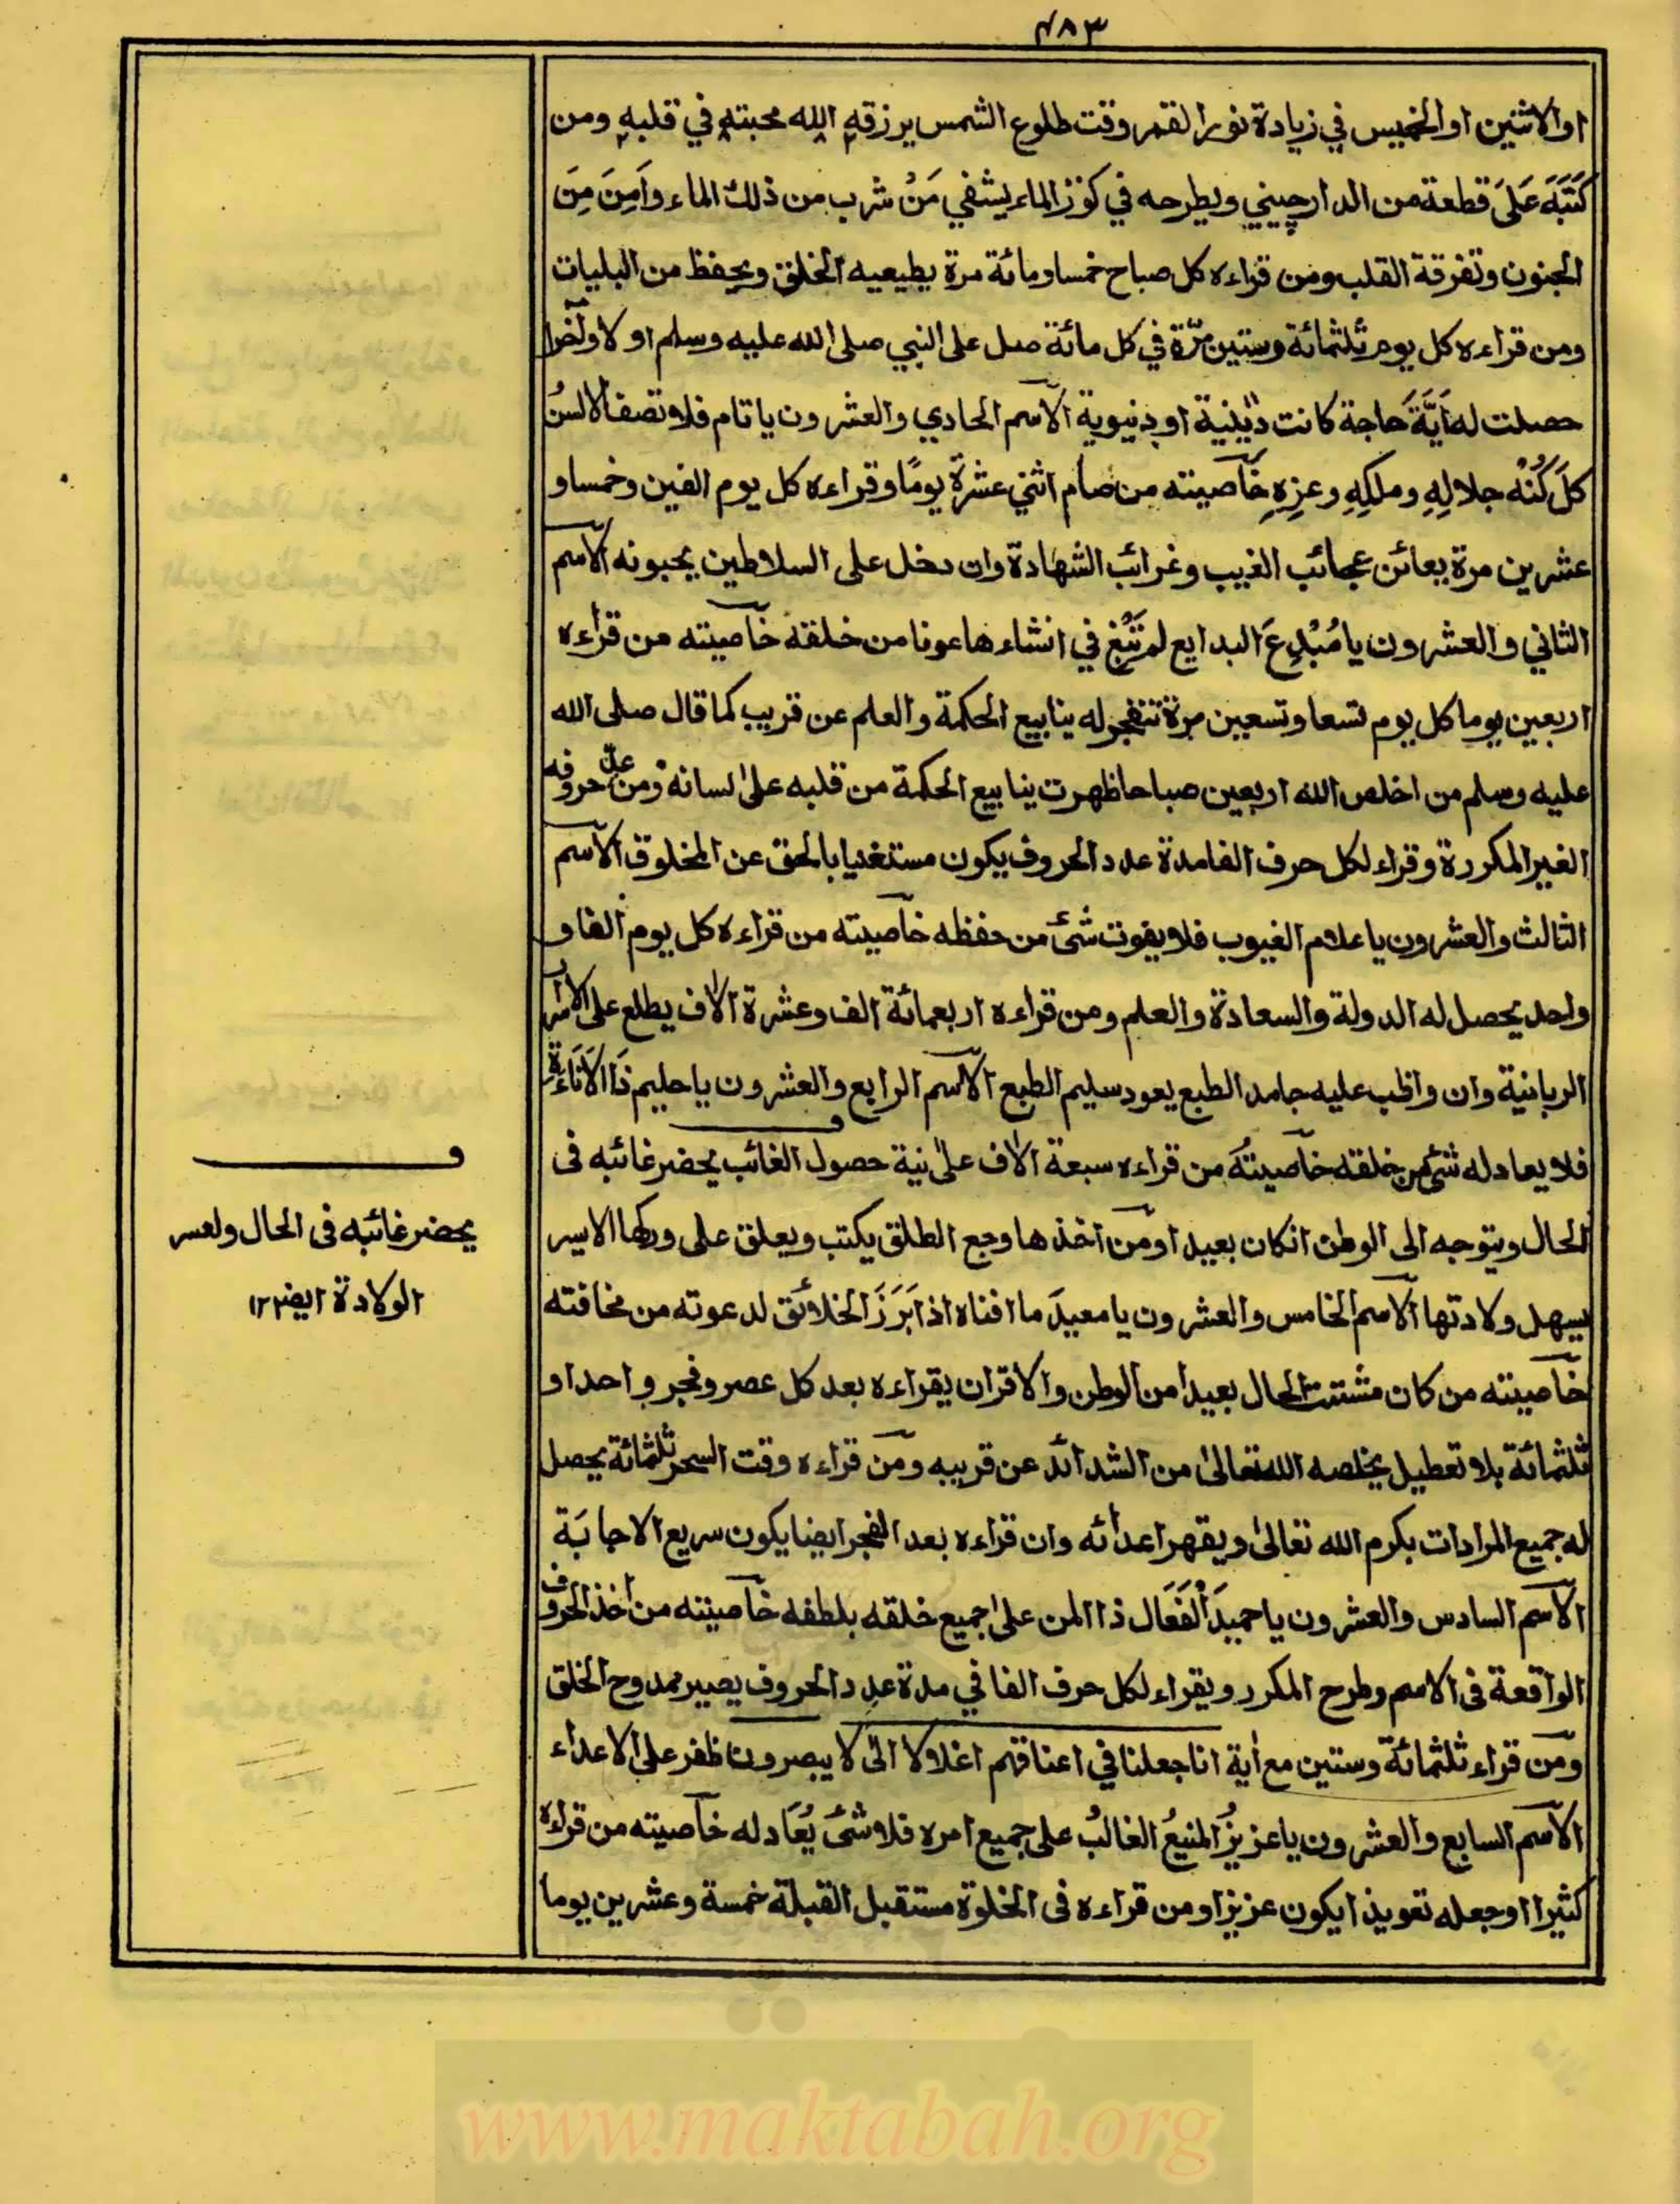 ٤٨٣
او الاثنين او الخميس في زيادة نور القمر وقت طلوع الشمس يرزقه الله محبته في قلبه ومن
كَتَبَهَ عَلَىَ قطعة من الدارچيني ويطرحه في كوز الماء يشفي مَنْ شرب من ذلك الماء واَمِنَ مِنَ
الجنون وتفرقة القلب ومن قراءه كل صباح خمسا ومائة مرة يطيعيه الخلق ويحفظ من البليات
ومن قراءه كل يوم ثلثمائة وستين مرّة في كل مائة صل على النبي صلى الله عليه وسلم اولا وآخرا
حصلت له اَيَّةَ حاجة كانت دينية او دنيوية الاسم الحادي والعشرون يا تام فلا تصف الالسنُ
كلَ كُنْهْ جلالِهِ وملكِهِ وعزِهِ خاصيته من صام اثني عشرة يومًا وقراءه كل يوم الفين وخمسا و
عشرين مرة يعائن عجائب الغيب وغرائب الشهادة وان دخل على السلاطين يحبونه الاسم
الثاني والعشرون يا مُبْدِعَ البدايع لم تَبْغ في انشاءها عونا من خلقه خاصيته من قراءه
اربعين يوما كل يوم تسعا وتسعين مرة تنفجر له ينابيع الحكمة والعلم عن قريب كما قال صلى الله
عليه وسلم من اخلص الله اربعين صباحا ظهرت ينابيع الحكمة من قلبه على لسانه ومن عدّ حروفه
الغير المكررة وقراء لكل حرف الفا مدة عدد الحروف يكون مستغنيا بالحق عن المخلوق الاسم
الثالث والعشرون يا علام الغيوب فلا يفوت شئ من حفظه خاصيته من قراءه كل يوم الفا و
واحد يحصل له الدولة والسعادة والعلم ومن قراءه اربعمائة الف وعشرة الاف يطلع على الاسرار
الربانية وان واظب عليه جامد الطبع يعود سليم الطبع الاسم الرابع والعشرون يا حليم ذَا الاَنَاءَةِ
فلا يعادله شئ من خلقه خاصيتهُ من قراءه سبعة الاف على نية حصول الغائب يحضر غائبه فى
الحال ويتوجه الى الوطن انكان بعيدا ومن اخذها وجع الطلق يكتب ويعلق على وركها الايسر
يسهل ولادتها الاسم الخامس والعشرون يا معيدَ ما افناه اذا بَرَزَ الخلائق لدعوته من مخافته
خاصيته من كان مشتت الحال بعيدا من الوطن والاقران يقراءه بعد كل عصر وفجر واحدا و
ثلثمائة بلا تعطيل يخلصه الله تعالى من الشدائد عن قريبه ومن قراءه وقت السحر ثلثمائة يحصل
له جميع المرادات بكرم الله تعالى ويقهر اعدائه وان قراءه بعد الفجر ايضا يكون سريع الاجابَة
الاسم السادس والعشرون يا حميدَ الْفَعَال ذا المن على جميع خلقه بلطفه خاصيته من اخذ الحروف
الواقعة فى الاسم وطرح المكرر ويقراء لكل حرف الفا في مدة عدد الحروف يصير ممدوح الخلق
ومن قراء ثلثمائة وستين مع اية انا جعلنا في اعناقهم اغلالا الى لا يبصرون ظفر على الاعداء
الاسم السابع والعشرون يا عزيزُ المنيعُ الغالبُ على جميع امره فلا شئَ يُعَادله خاصيته من قراءه
كثيرا او جعله تعويذا يكون عزيزا ومن قراءه فى الخلوة مستقبل القبلة خمسة وعشرين يوما
يحضر غائبه فى الحال ولعسر
الولادة ايض ١٢
www.maktabah.org